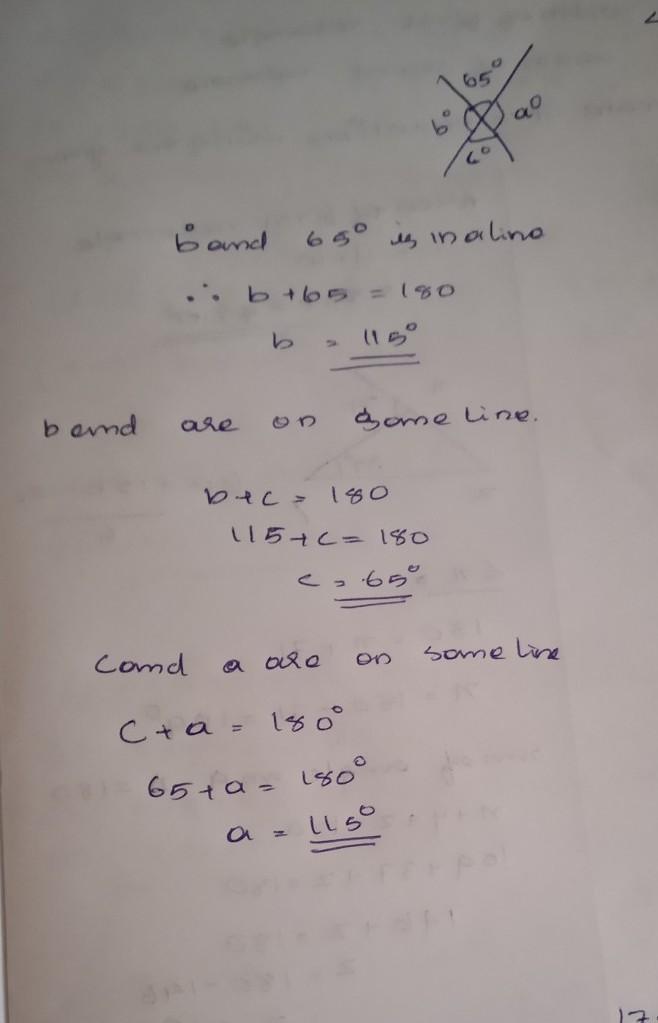 65°
b° a°
c°
b° and 65° is in a line
∴ b + 65 = 180
b = 115°
b and are on same line.
b + c = 180
115 + c = 180
c = 65°
c and a are on same line
c + a = 180°
65 + a = 180°
a = 115°
17